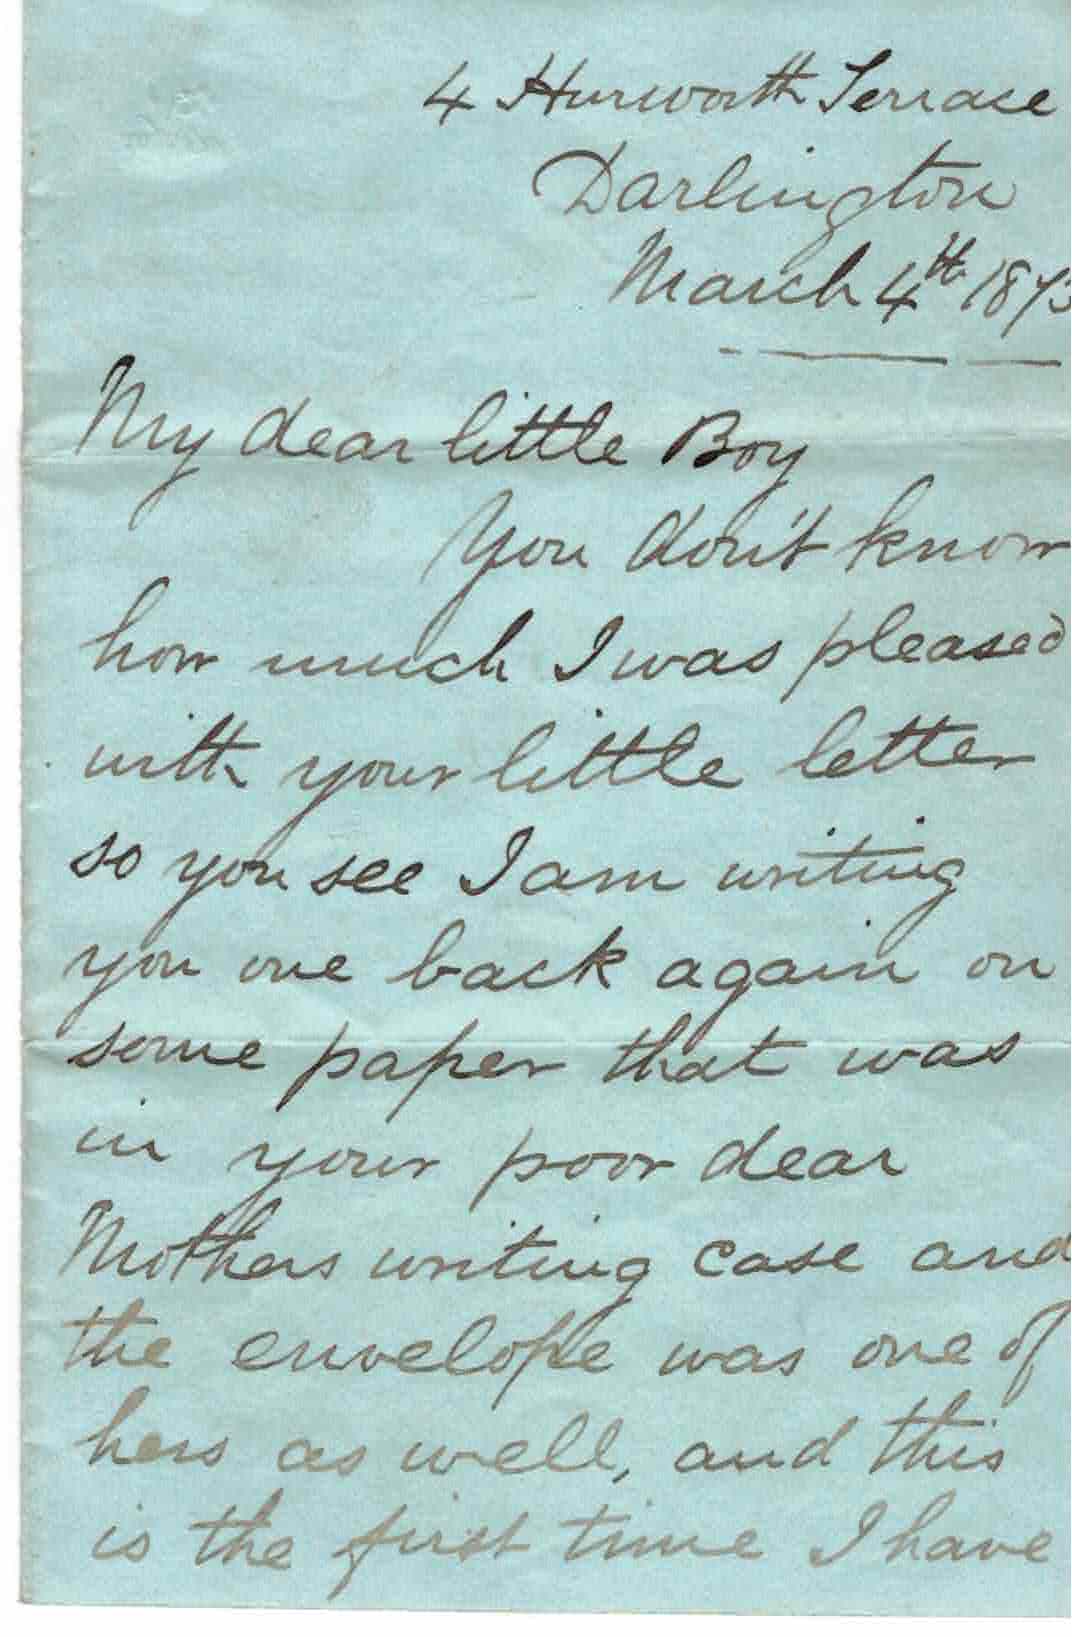 4 Hurworth Terrace
Darlington
March 4th 1873
My dear little Boy
You don't know
how much I was pleased
with your little letter
so you see I am writing
you one back again on
some paper that was
in your poor dear
Mothers writing case and
the envelope was one of
hers as well, and this
is the first time I have